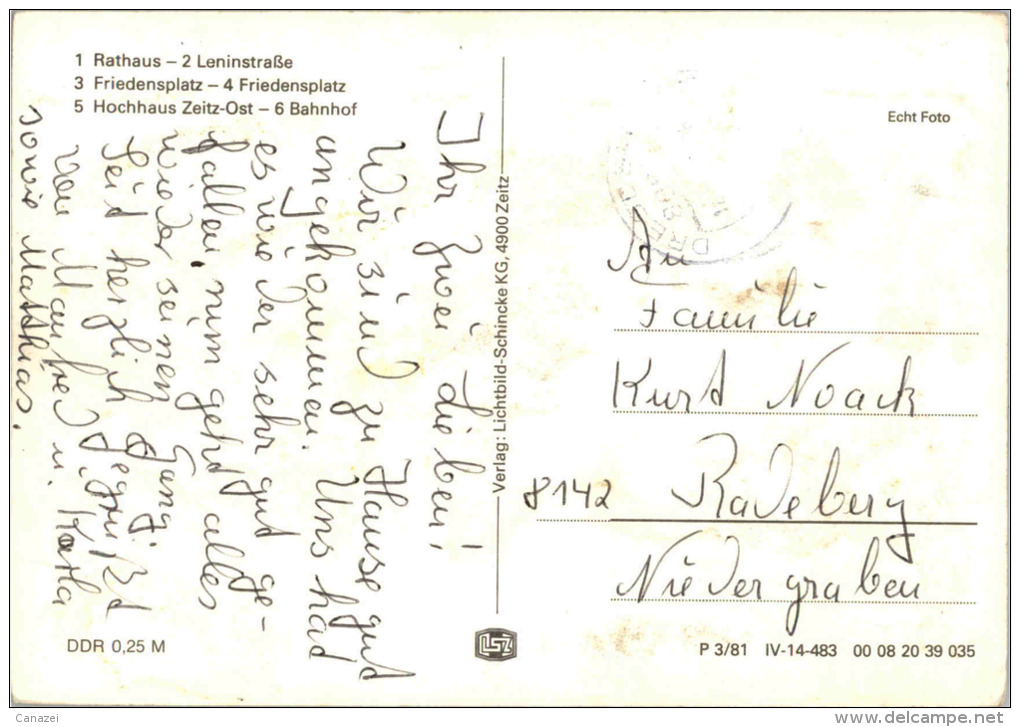 1 Rathaus – 2 Leninstraße
3 Friedensplatz – 4 Friedensplatz
5 Hochhaus Zeitz-Ost – 6 Bahnhof
Ihr zwei Lieben!
Wir sind zu Hause gut
angekommen. Uns hat
es wieder sehr gut ge-
fallen, nun geht alles
wieder seinen Gang.
Seid herzlich gegrüßt
von Manfred u. Karla
sowie Matthias.
DDR 0,25 M
Verlag: Lichtbild-Schincke KG, 4900 Zeitz
LSZ
Echt Foto
An
Familie
Kurt Noack
8142 Radeberg
Niedergraben
P 3/81 IV-14-483 00 08 20 39 035
Canazei
http://www.delcampe.net